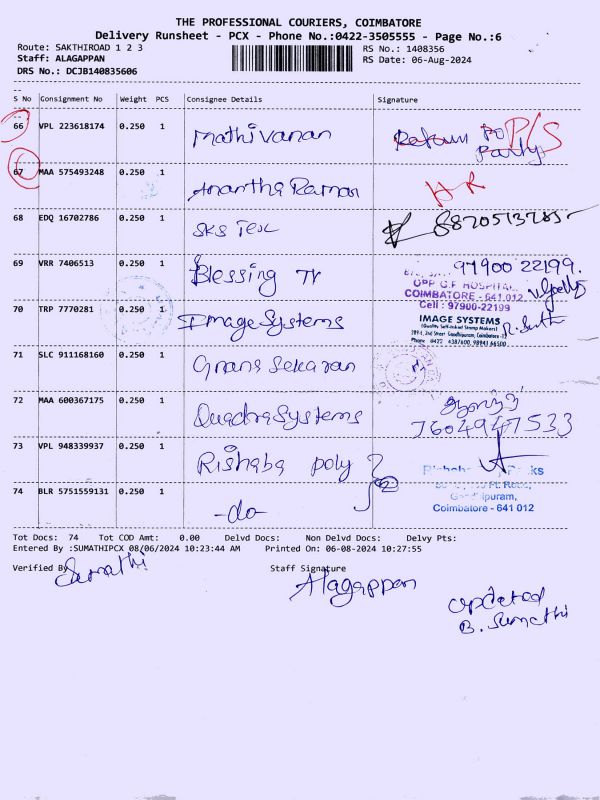 THE PROFESSIONAL COURIERS, COIMBATORE
Delivery Runsheet - PCX - Phone No.:0422-3505555 - Page No.:6
Route: SAKTHIROAD 1 2 3
RS No.: 1408356
Staff: ALAGAPPAN
RS Date: 06-Aug-2024
DRS No.: DCJB140835606
S No Consignment No Weight PCS Consignee Details Signature
66 VPL 223618174 0.250 1 Mathivanan Return to Party P/S
67 MAA 575493248 0.250 1 Anantha Raman
68 EDQ 16702786 0.250 1 SKS Tex
69 VRR 7406513 0.250 1 Blessing TV 97900 22199.
OPP G.F. HOSPITAL
COIMBATORE - 641 012
Cell : 97900-22199
70 TRP 7770281 0.250 1 Image Systems
IMAGE SYSTEMS
(Quality Self-inked Stamp Makers)
71 SLC 911168160 0.250 1
72 MAA 600367175 0.250 1 Quadra Systems
7604947533
73 VPL 948339937 0.250 1 Rishaba poly
74 BLR 5751559131 0.250 1 -do-
Gandhipuram,
Coimbatore - 641 012
Tot Docs: 74 Tot COD Amt: 0.00 Delvd Docs: Non Delvd Docs: Delvy Pts:
Entered By :SUMATHIPCX 08/06/2024 10:23:44 AM Printed On: 06-08-2024 10:27:55
Verified By Sumathi
Staff Signature
Alagappan
Updated
B. Sumathi